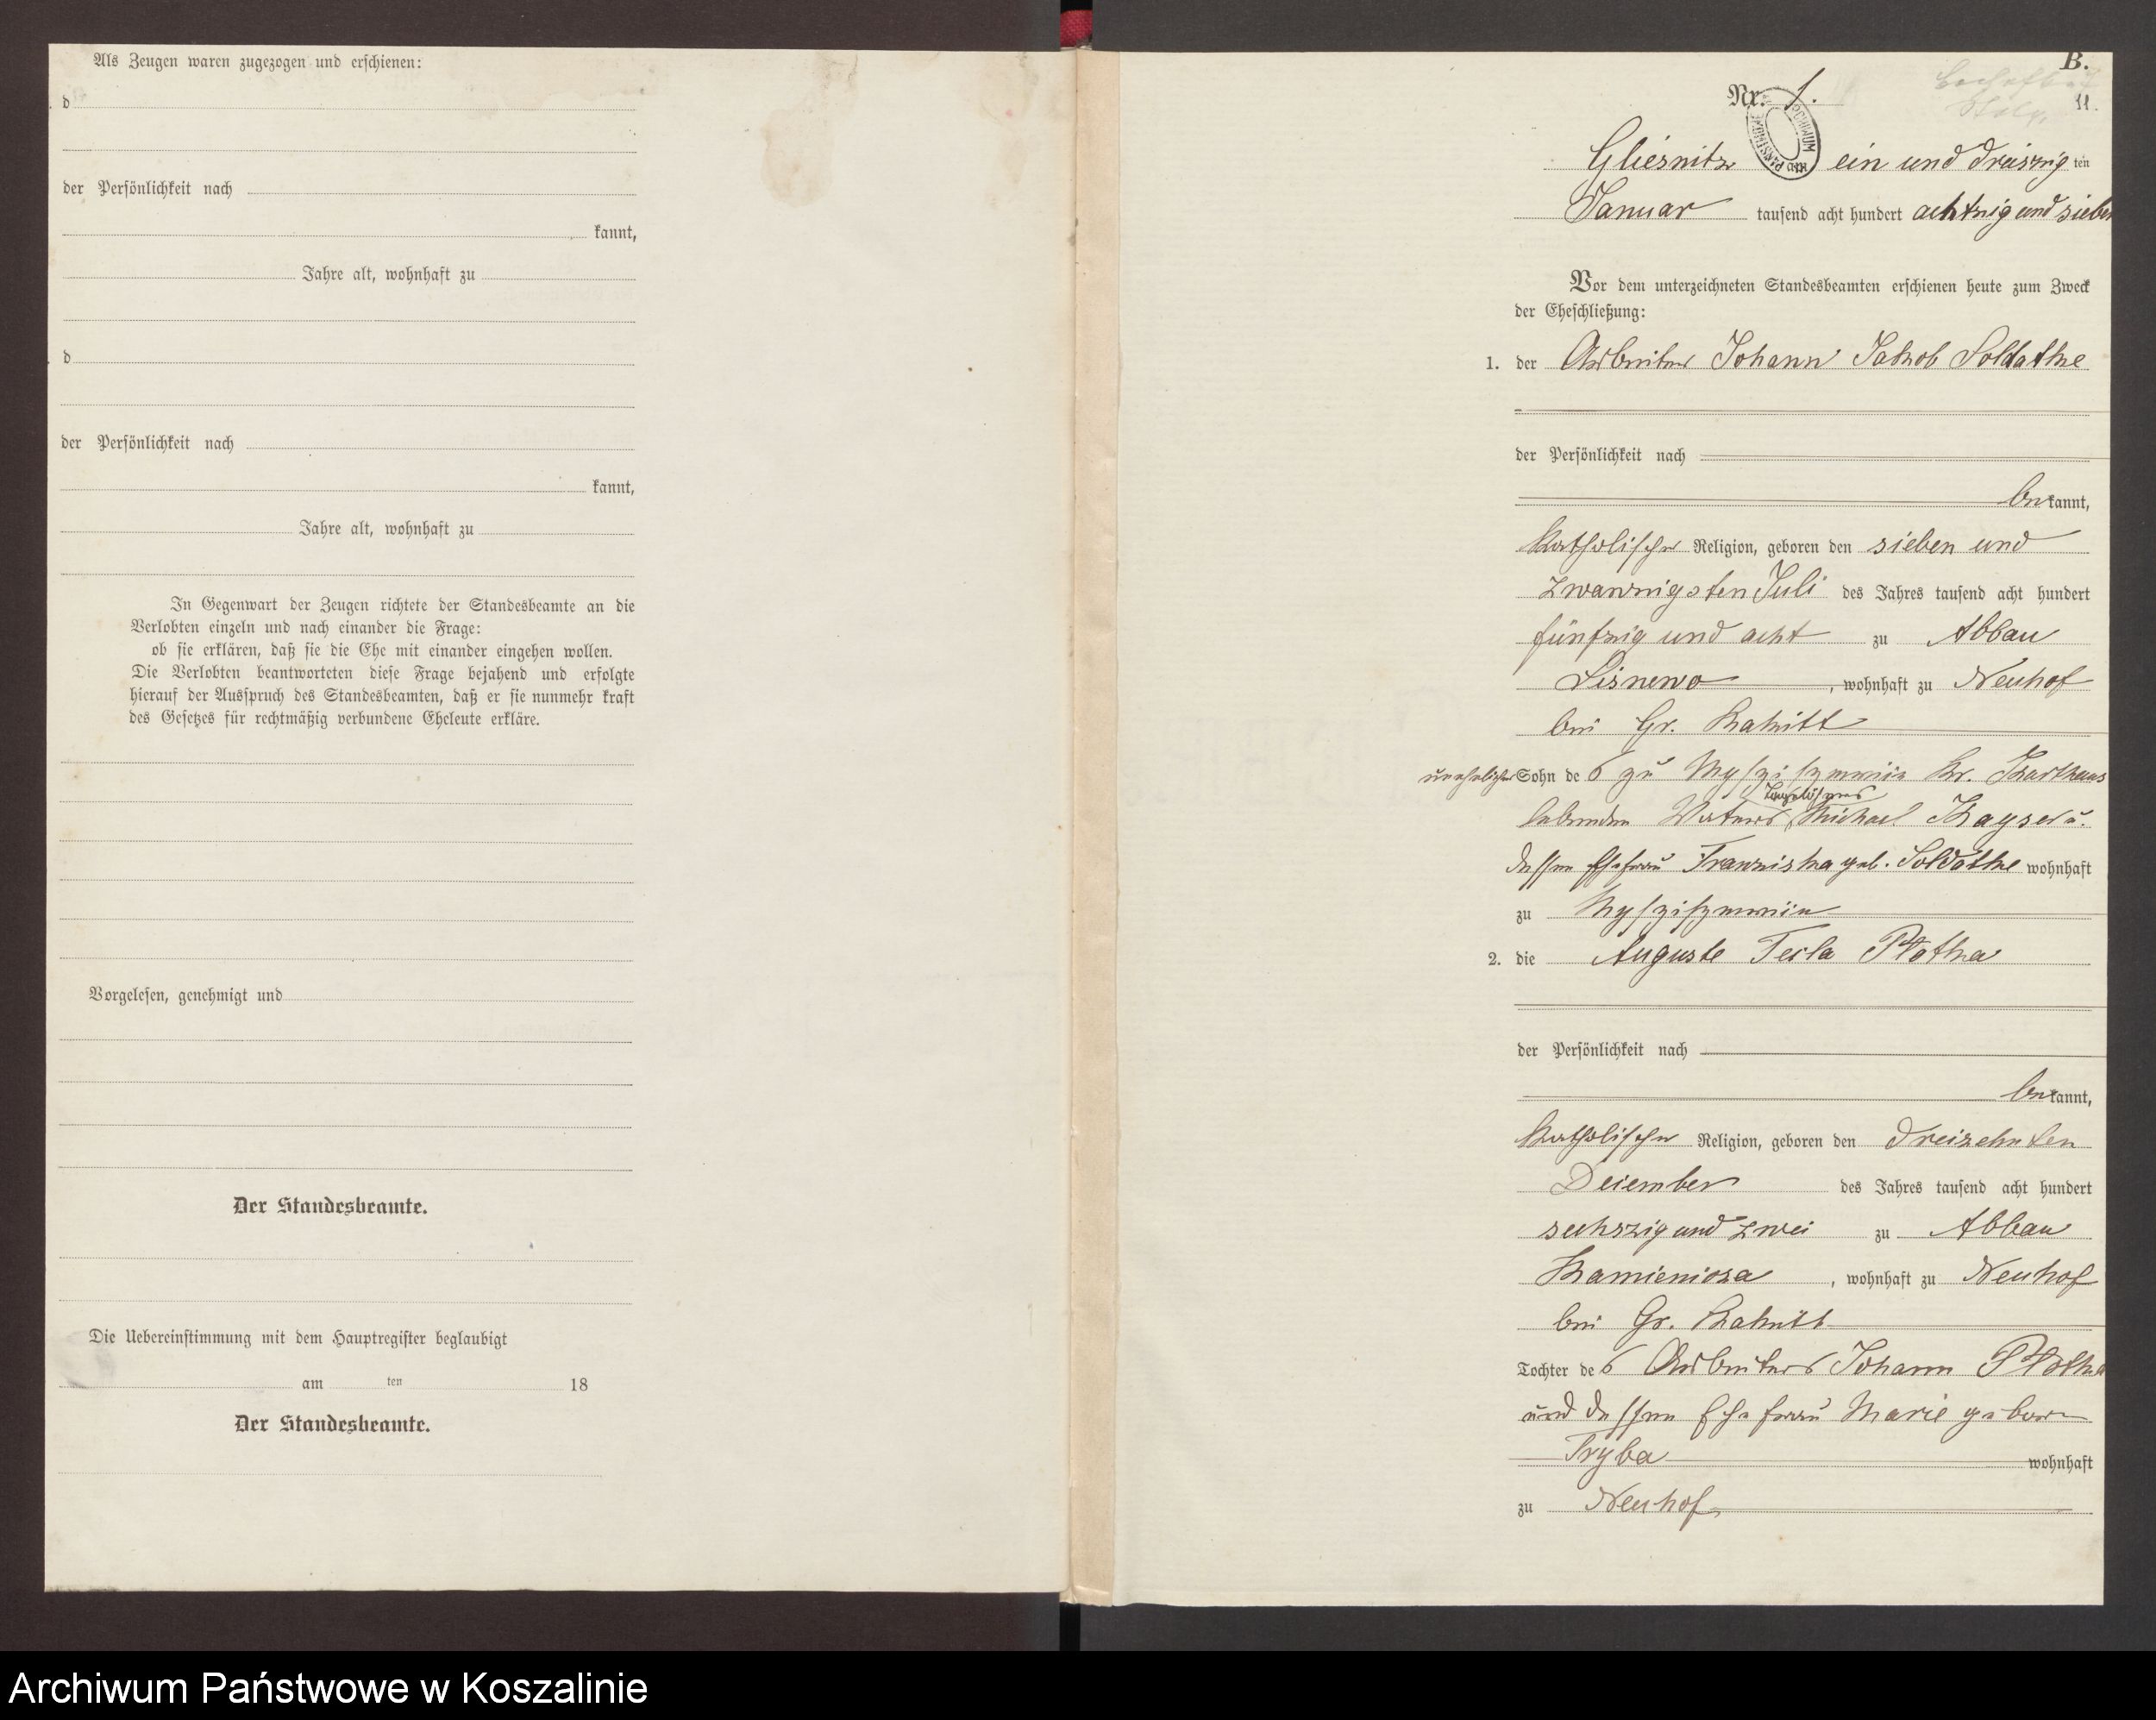 Als Zeugen waren zugezogen und erschienen:
d
der Persönlichkeit nach
kannt,
Jahre alt, wohnhaft zu
d
der Persönlichkeit nach
kannt,
Jahre alt, wohnhaft zu
In Gegenwart der Zeugen richtete der Standesbeamte an die
Verlobten einzeln und nach einander die Frage:
ob sie erklären, daß sie die Ehe mit einander eingehen wollen.
Die Verlobten beantworteten diese Frage bejahend und erfolgte
hierauf der Ausspruch des Standesbeamten, daß er sie nunmehr kraft
des Gesetzes für rechtmäßig verbundene Eheleute erkläre.
Vorgelesen, genehmigt und
Der Standesbeamte.
Die Uebereinstimmung mit dem Hauptregister beglaubigt
am ten 18
Der Standesbeamte.
B.
Nr. 1.
11.
Gliesnitz ein und dreiszig ten
Januar tausend acht hundert achtzig und sieben
Vor dem unterzeichneten Standesbeamten erschienen heute zum Zweck
der Eheschließung:
1. der Arbeiter Johann Jakob Soldatke
der Persönlichkeit nach
bekannt,
katholischer Religion, geboren den sieben und
zwanzigsten Juli des Jahres tausend acht hundert
fünfzig und acht zu Abbau
Lisnewo, wohnhaft zu Neuhof
bei Gr. Rakitt
unehelicher Sohn des zu Kr. Karthaus
Tagelöhners
lebenden Vaters Michael Kayser u.
dessen Ehefrau Franziska geb. Soldatke wohnhaft
zu
2. die Auguste Tecla Plotka
der Persönlichkeit nach
bekannt,
katholischer Religion, geboren den dreizehnten
Dezember des Jahres tausend acht hundert
sechszig und zwei zu Abbau
Kamienioza, wohnhaft zu Neuhof
bei Gr. Rakitt
Tochter des Arbeiters Johann Plotka
und dessen Ehefrau Marie geboren
Tryba wohnhaft
zu Neuhof
Archiwum Państwowe w Koszalinie